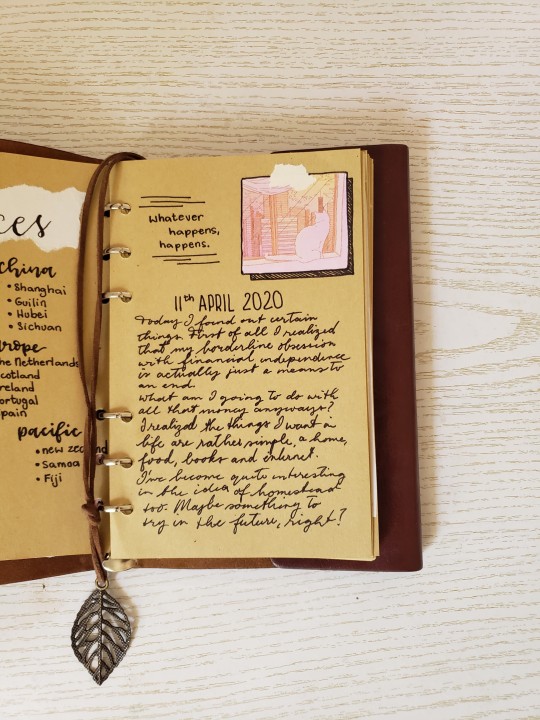 ces
China
• Shanghai
• Guilin
• Hubei
• Sichuan
urope
he Netherlands
cotland
reland
ortugal
pain
pacific
• new zealand
• Samoa
• Fiji
whatever
happens,
happens.
11th APRIL 2020
Today I found out certain
things. First of all I realized
that my borderline obsession
with financial independence
is actually just a means to
an end.
What am I going to do with
all that money anyways?
I realized the things I want in
life are rather simple, a home,
food, books and internet.
I've become quite interesting
in the idea of homestead
too. Maybe something to
try in the future, right?